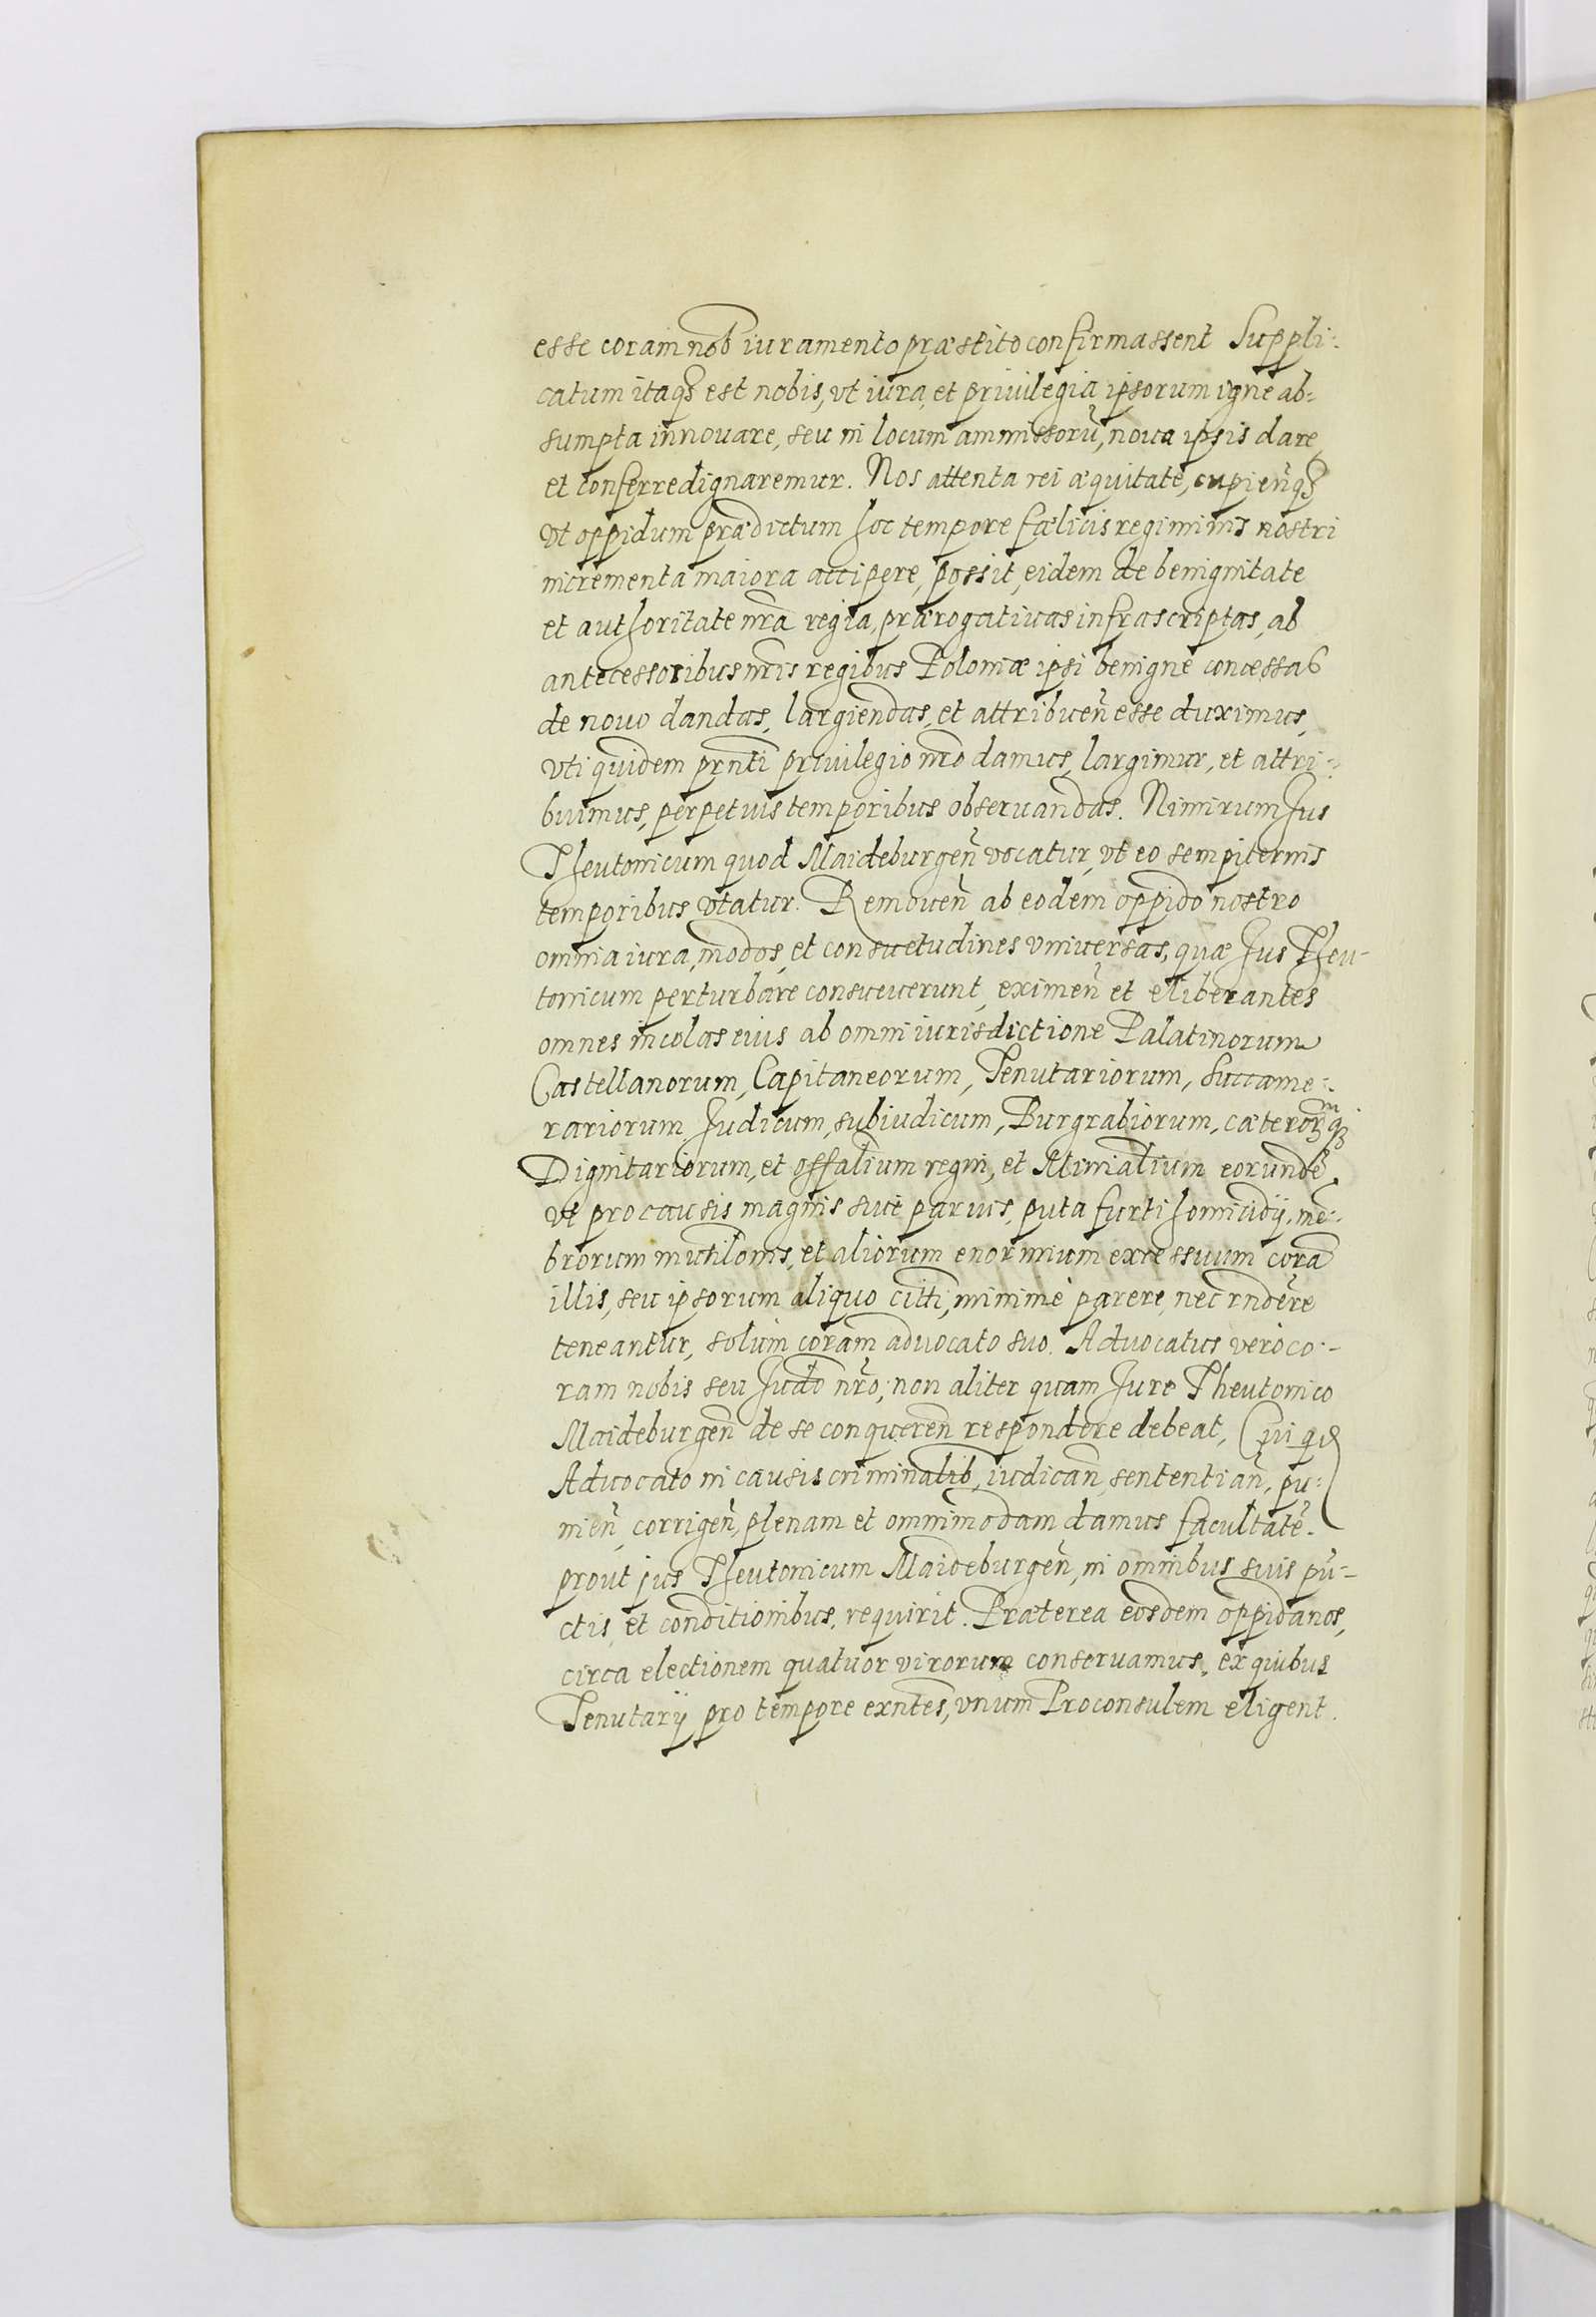 esse coram nob iuramento præstito confirmassent Suppli-
catum itaqꝫ est nobis, vt iura, et priuilegia ipsorum igne ab-
sumpta innouare, seu in locum ammissorũ, noua ipsis dare,
et conferre dignaremur. Nos attenta rei æquitate, cupieñqꝫ
vt oppidum prædictum hoc tempore fælicis regiminis nostri
incrementa maiora accipere, possit, eidem de benignitate
et authoritate nrã regia, prærogatiuas infrascriptas, ab
antecessoribus nris regibus Poloniæ ipsi benigne concessas
de nouo dandas, largiendas, et attribueñ esse duximus,
vti quidem prñti priuilegio nrõ damus, largimur, et attri-
buimus, perpetuis temporibus obseruandas. Nimirum Jus
Theutonicum quod Maideburgeñ vocatur, vt eo sempiternis
temporibus vtatur. Remoueñ ab eodem oppido nostro
omnia iura, modos, et consuetudines vniuersas, quæ Jus Theu-
tonicum perturbare consueuerunt, eximeñ et eliberantes
omnes incolas eius ab omni iurisdictione Palatinorum
Castellanorum, Capitaneorum, Tenutariorum, Succame-
rariorum Judicum, subiudicum, Burgrabiorum, cæterorumqꝫ
Dignitariorum, et offalium regni, et Minialium eorundẽ.
vt pro causis magnis siue paruis, puta furti homicidij, mẽ-
brorum mutilonis, et aliorum enormium excessuum corã
illis, seu ipsorum aliquo citti, minimè parere, nec rñdere
teneantur, solum coram aduocato suo. Aduocatus verò co-
ram nobis seu Judõ nr̃o, non aliter quam Jure Theutonico
Maideburgeñ de se conquereñ respondere debeat, Cui qd
Aduocato in causis criminalib, iudicañ, sententiañ, pu-
nieñ, corrigeñ, plenam et omnimodam damus facultatẽ.
prout jus Theutonicum Maideburgeñ, in omnibus suis pũ-
ctis, et conditionibus, requirit. Præterea eosdem oppidanos,
circa electionem quatuor virorum conseruamus, ex quibus
Tenutarij pro tempore exñtes, vnum Proconsulem eligent.